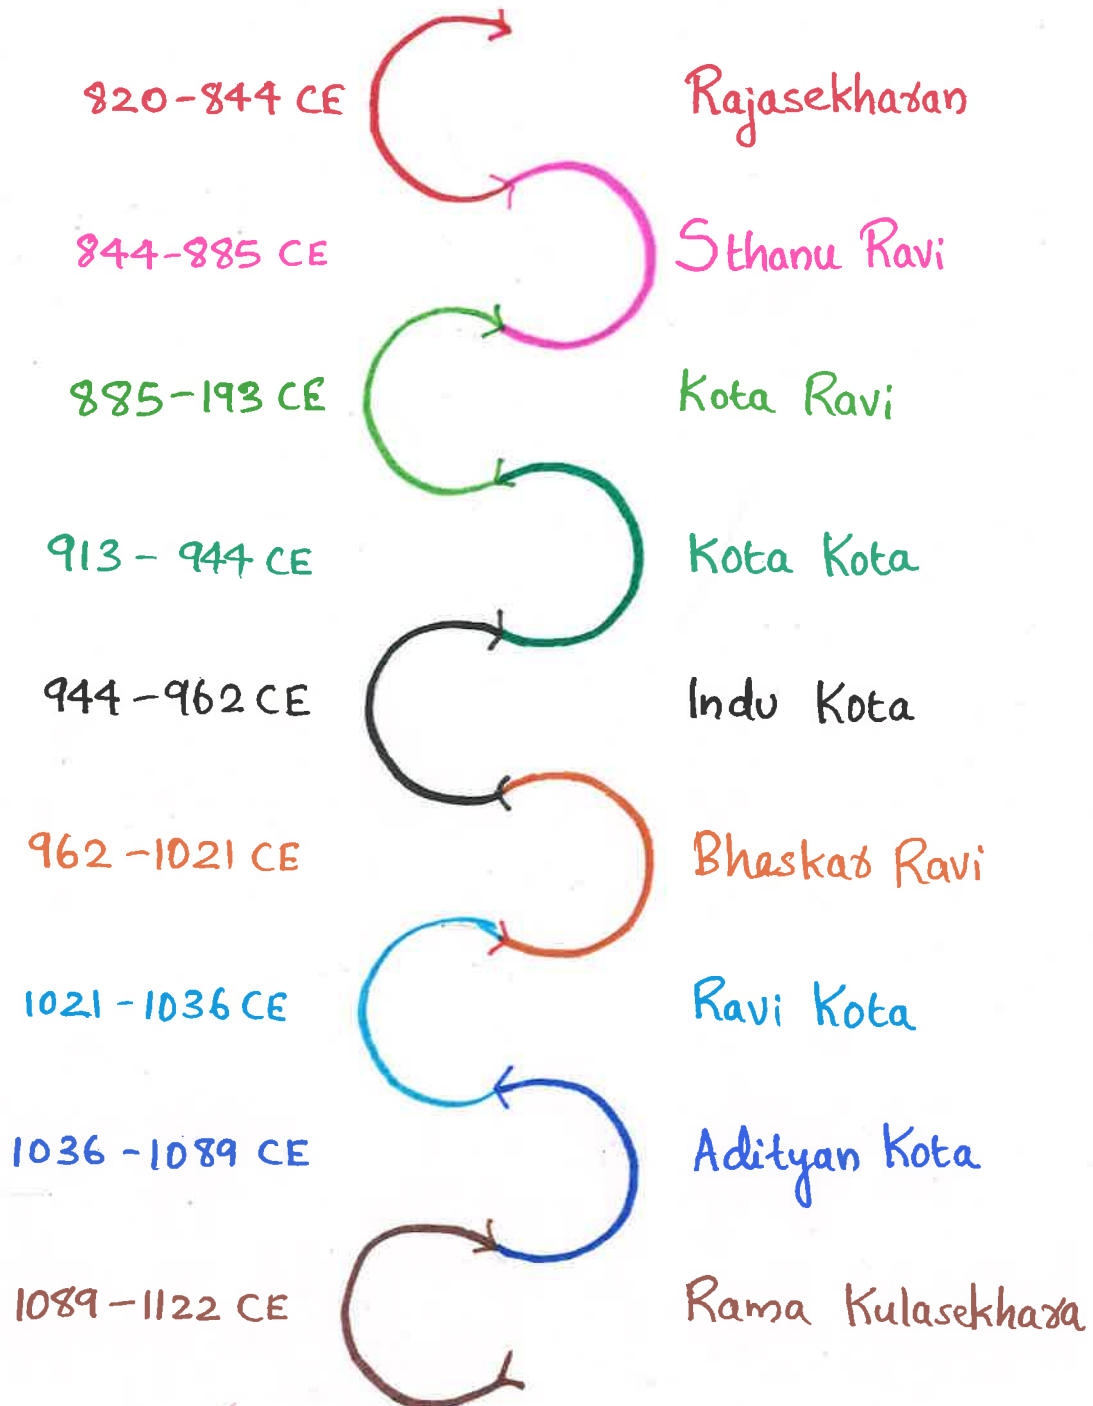 820-844 CE Rajasekharan
844-885 CE Sthanu Ravi
885-193 CE Kota Ravi
913 - 944 CE Kota Kota
944-962 CE Indu Kota
962-1021 CE Bhaskar Ravi
1021-1036 CE Ravi Kota
1036-1089 CE Adityan Kota
1089-1122 CE Rama Kulasekhara